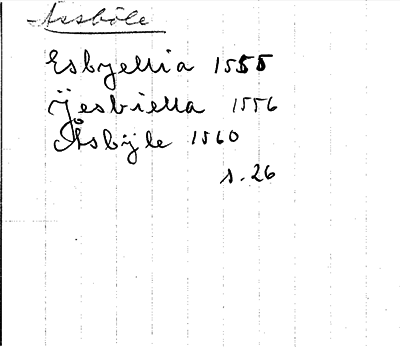 Assböle
Esbyellia 1555
Ÿesbiella 1556
Åsbÿle 1560
s. 26